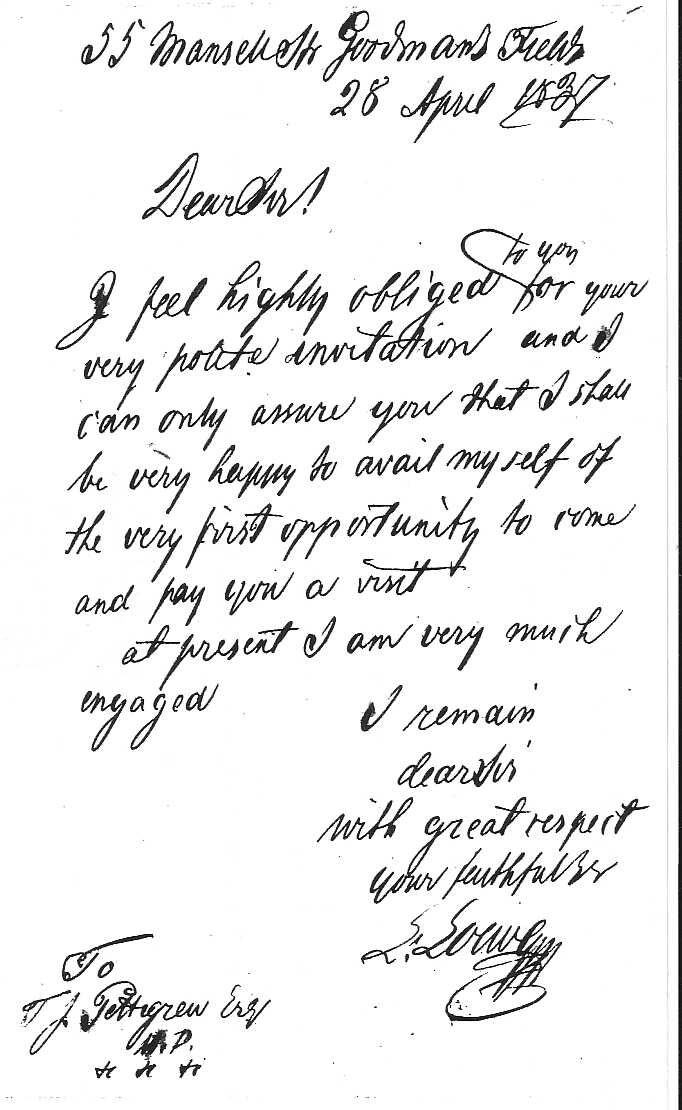 55 Mansell Str Goodmans Fields
28 April 1837
Dear Sir!
I feel highly obliged to you for your
very polite invitation and I
can only assure you that I shall
be very happy to avail myself of
the very first opportunity to come
and pay you a visit
at present I am very much
engaged
I remain
dear Sir
with great respect
your faithfully
L. Loewe
To
T J Pettigrew Esq
&c &c &c